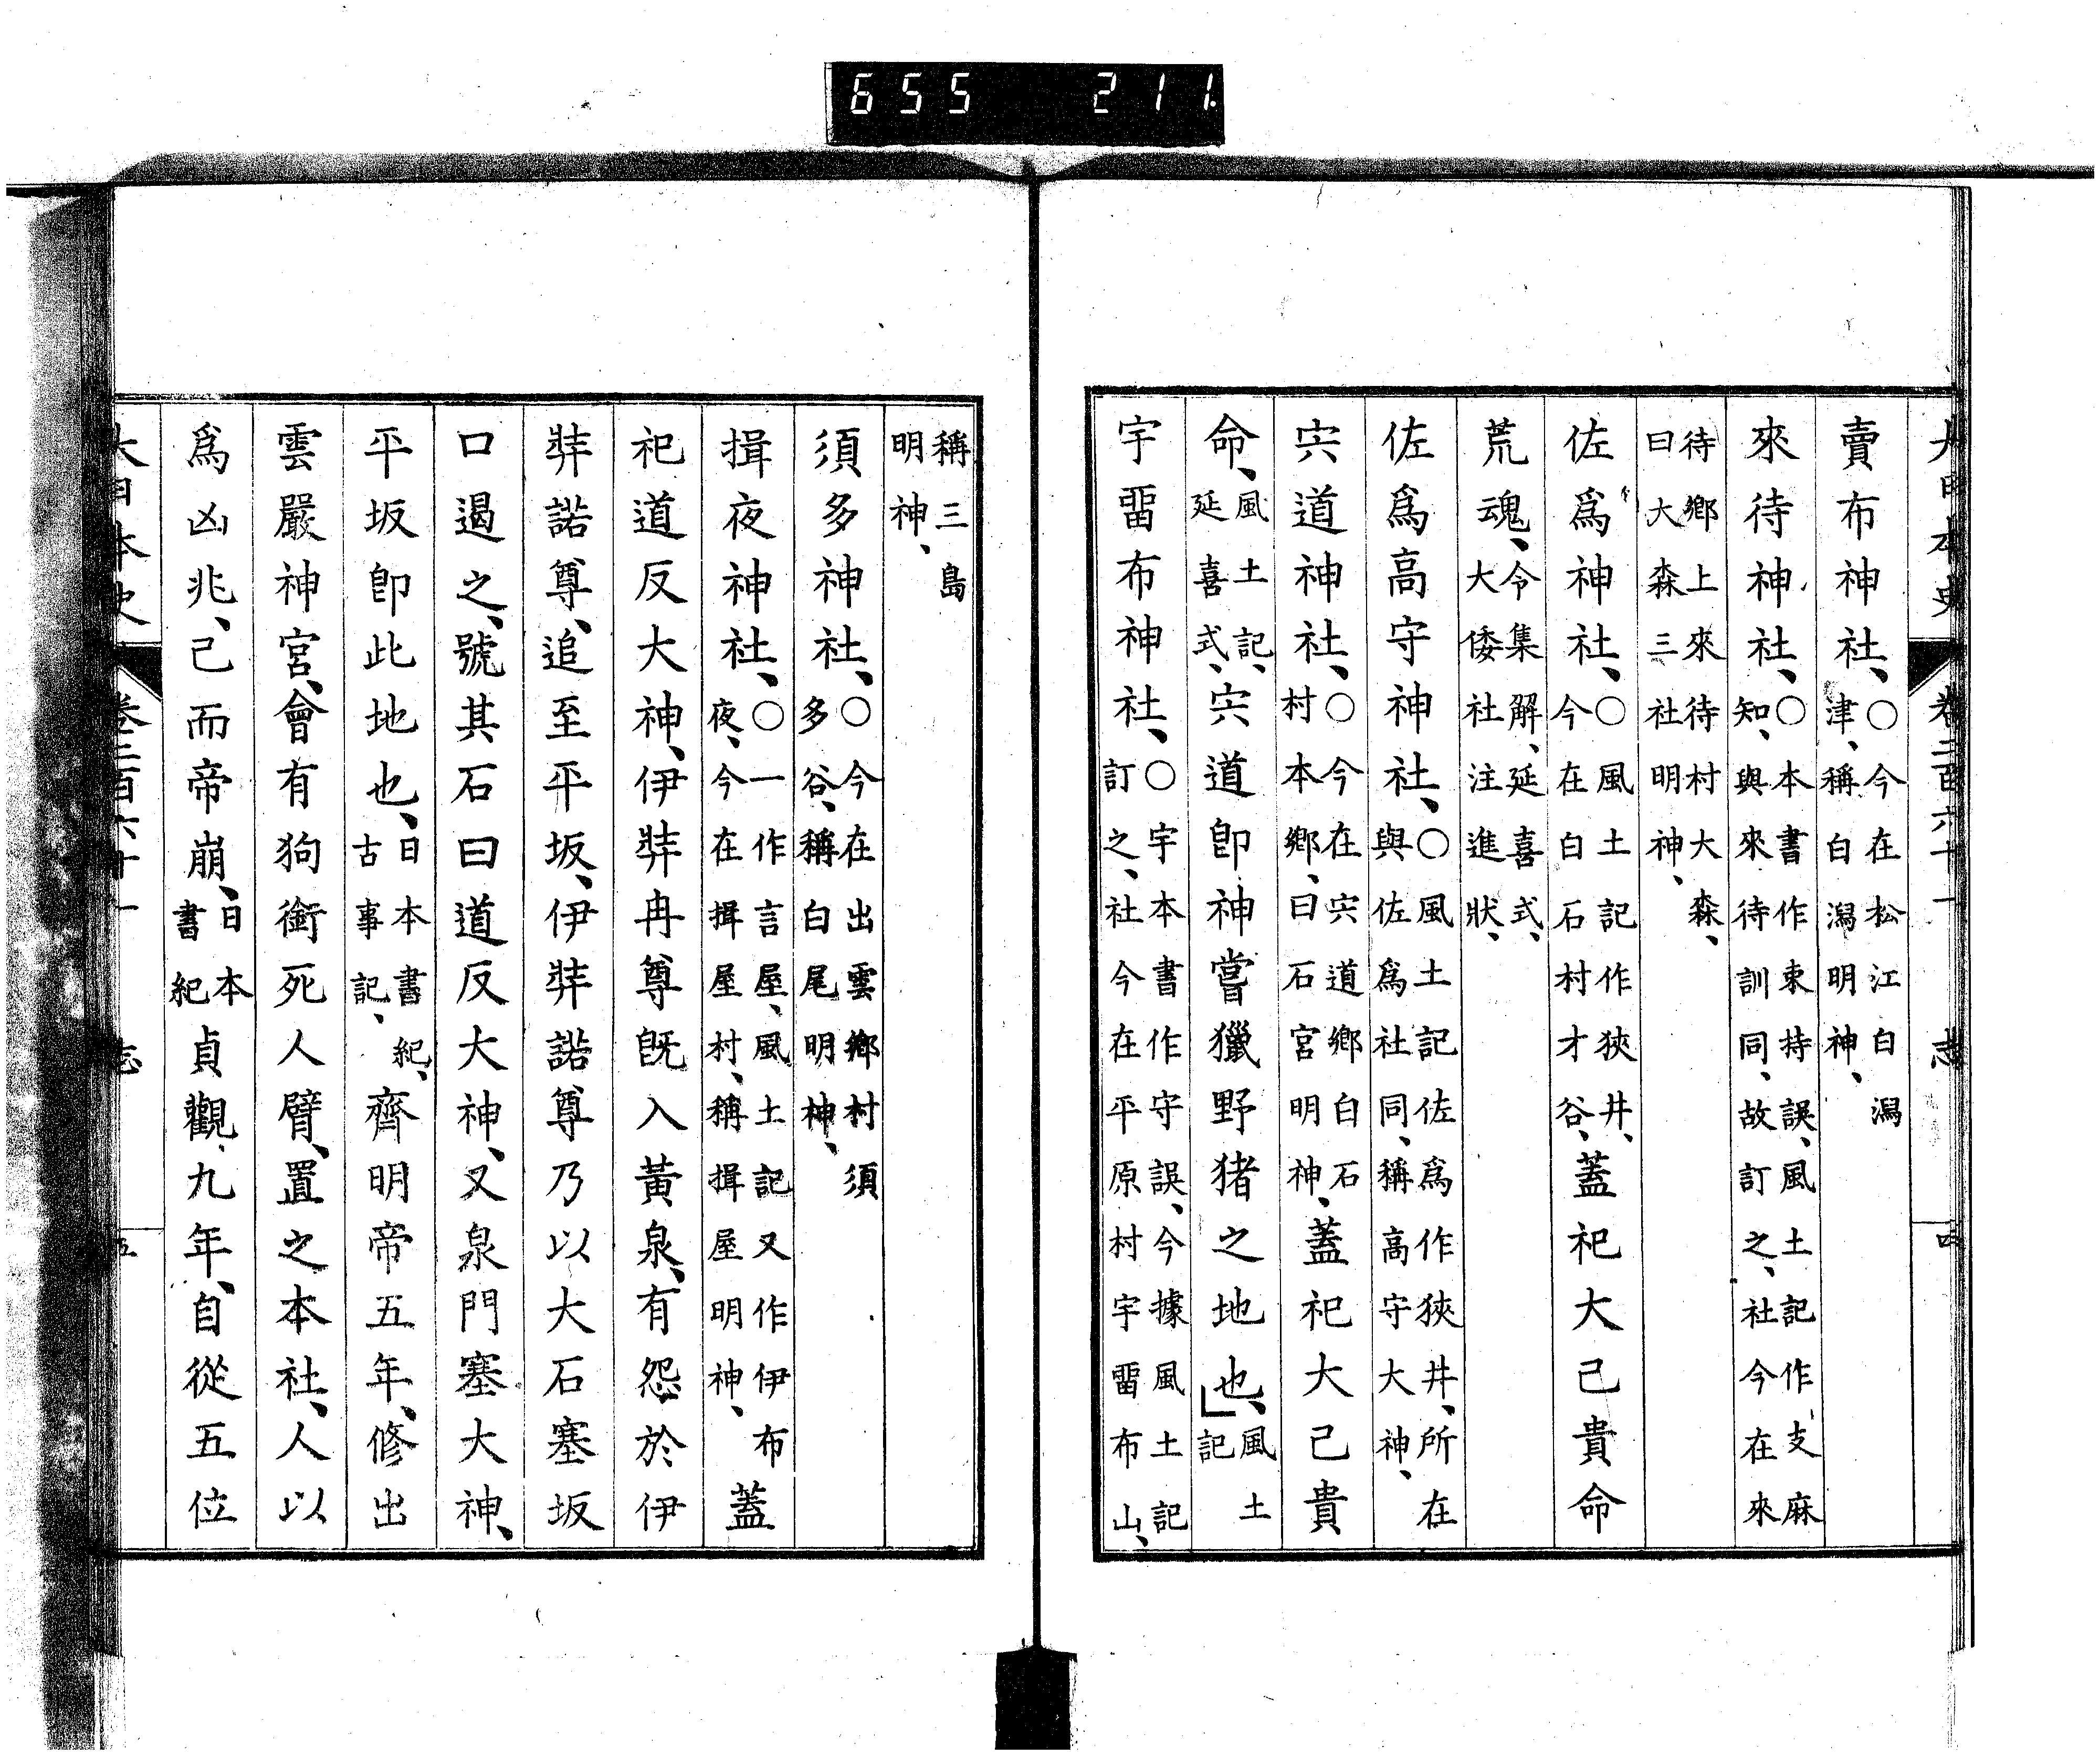 655 211
大日本史 卷二百六十一 志 四
賣布神社、○今在松江白潟津、稱白潟明神、
來待神社、○本書作束持誤、風土記作支麻知、與來待訓同、故訂之、社今在來
待鄉上來待村大森、曰大森三社明神、
佐爲神社、○風土記作狹井、今在白石村才谷、蓋祀大己貴命
荒魂、令集解、延喜式、大倭社注進狀、
佐爲高守神社、○風土記佐爲作狹井、所在與佐爲社同、稱高守大神、
宍道神社、○今在宍道鄉白石村本鄉、曰石宮明神、蓋祀大己貴
命、風土記、延喜式、宍道卽神嘗獵野猪之地也、風土記
宇畱布神社、○宇本書作守誤、今據風土記訂之、社今在平原村宇畱布山、
稱三島明神、
須多神社、○今在出雲鄉村須多谷、稱白尾明神、
揖夜神社、○一作言屋、風土記又作伊布夜、今在揖屋村、稱揖屋明神、蓋
祀道反大神、伊弉冉尊旣入黃泉、有怨於伊
弉諾尊、追至平坂、伊弉諾尊乃以大石塞坂
口遏之、號其石曰道反大神、又泉門塞大神、
平坂卽此地也、日本書紀、古事記、齊明帝五年、修出
雲嚴神宮、會有狗銜死人臂、置之本社、人以
爲凶兆、己而帝崩、日本書紀貞觀九年、自從五位
大日本史 卷二百六十一 志 五